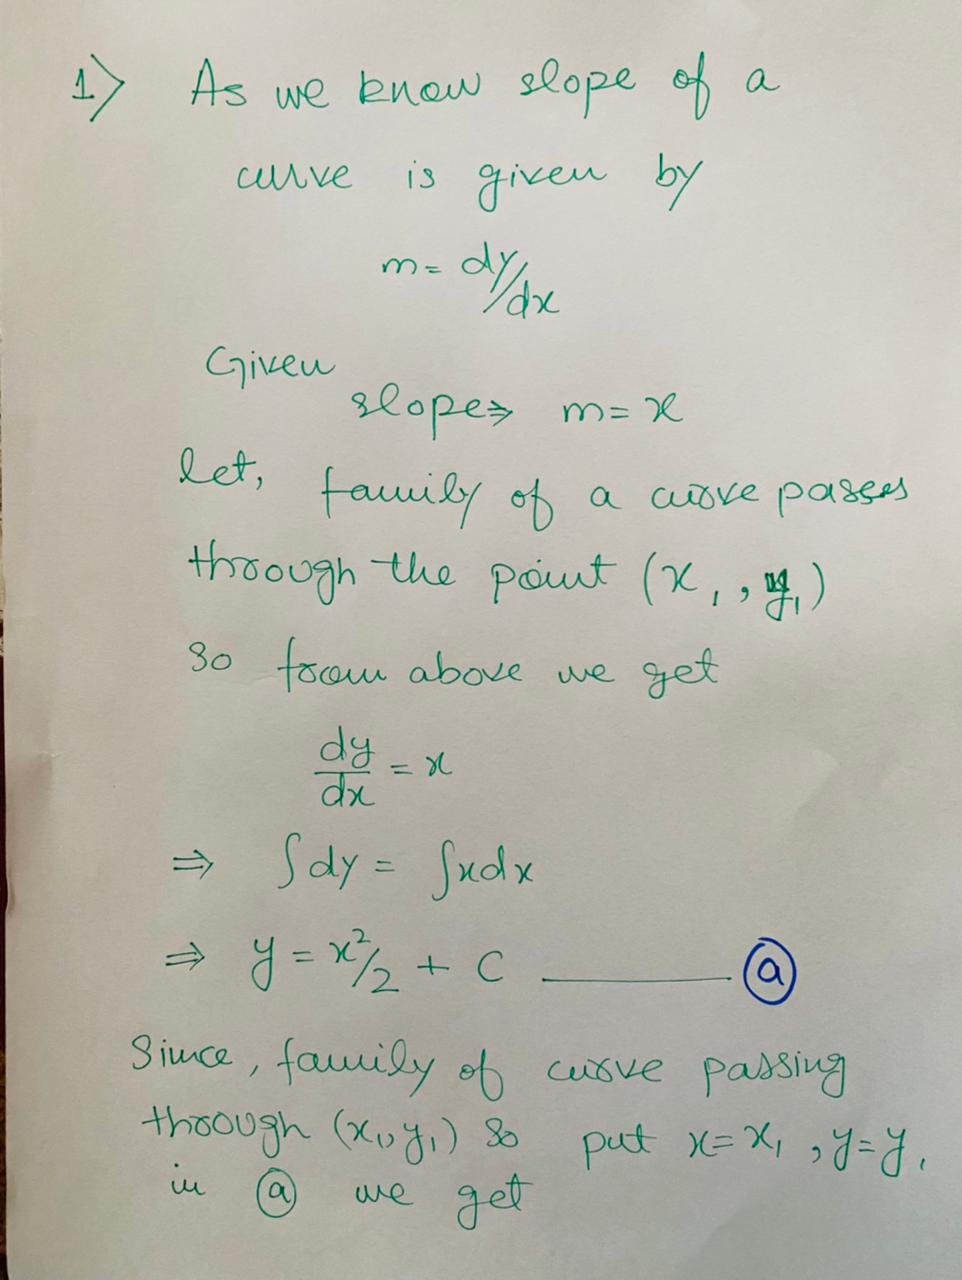 1) As we know slope of a
curve is given by
m = dy/dx
Given
slope ⇒ m = x
let, family of a curve passes
through the point (x₁, y₁)
so from above we get
dy/dx = x
⇒ ∫dy = ∫xdx
⇒ y = x²/2 + C ——— ⓐ
Since, family of curve passing
through (x₁, y₁) so put x = x₁, y = y₁
in ⓐ we get